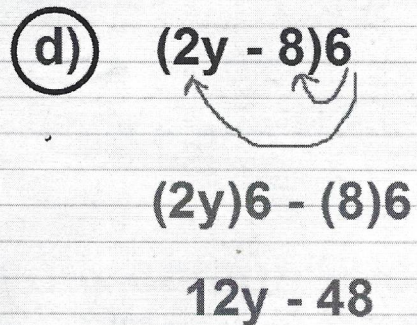 d) (2y - 8)6
(2y)6 - (8)6
12y - 48